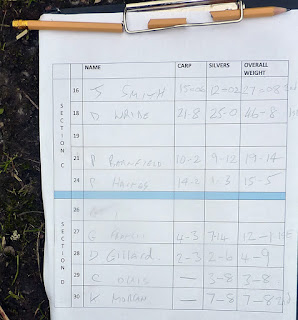 NAME CARP SILVERS OVERALL WEIGHT
SECTION C
16 S SMITH 15-06 12-02 27-08
18 D WAYNE 21-8 25-0 46-8
19
21 P 10-2 9-12 19-14
24 P HAINES 1-3 15-5
26
SECTION D
27 G 4-3 7-14 12-1
28 D Gillard 2-3 2-6 4-9
29 C — 3-8 3-8
30 K MORGAN — 7-8 7-8